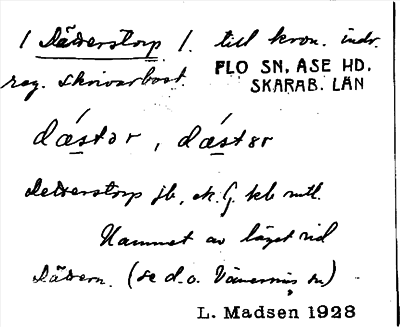 1 Dätterstorp 1. till kron. indr.
reg. skrivarbost. FLO SN, ÅSE HD.
SKARAB. LÄN
dástər, dástər
Detterstorp jb, ek. kb mtl.
Namnet av läget vid
Dättern. (se d. o. Vänersnäs sn)
L. Madsen 1928